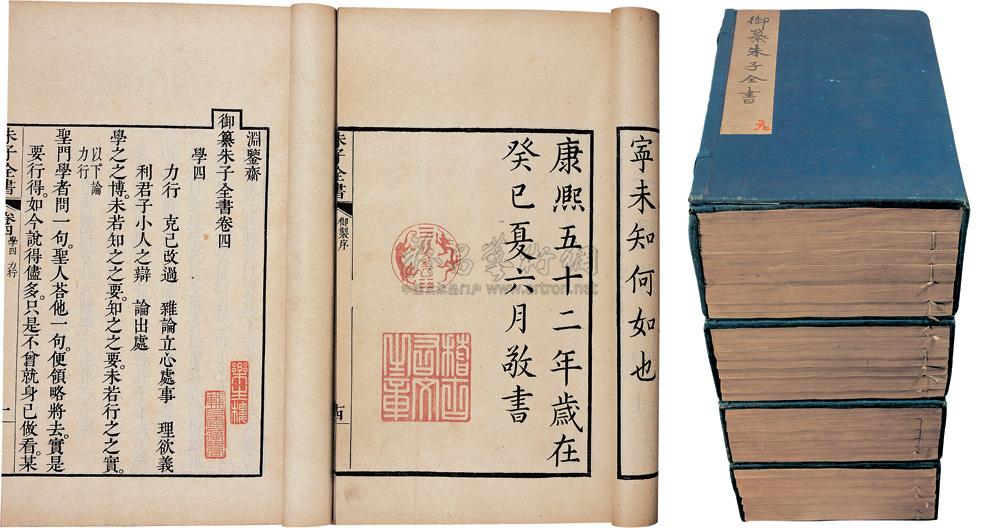 御纂朱子全書
元
寧未知何如也
康熙五十二年歲在
癸巳夏六月敬書
稽古右文之章
朱子全書 御製序
淵鑒齋
御纂朱子全書卷四
學四
力行 克己改過 雜論立心處事 理欲義
利君子小人之辯 論出處
學之之博。未若知之之要。知之之要。未若行之之實。
以下論
力行
聖門學者問一句。聖人荅他一句。便領略將去。實是
要行得。如今說得儘多。只是不曾就身己做看。某
朱子全書 卷四 學四 力行 一
藝術網
www.artron.net